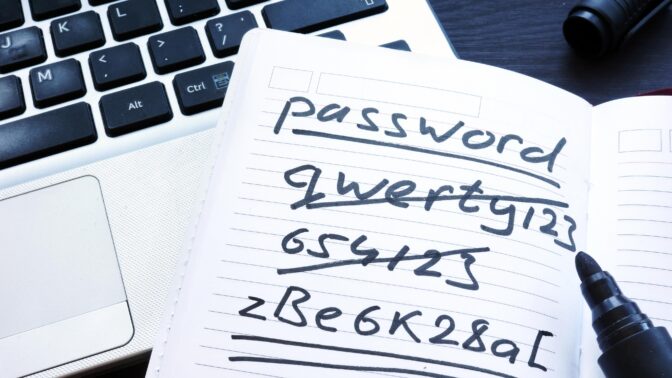 J K L
M < > ?
Alt Ctrl
password
qwerty123
654123
zBe6K28a[